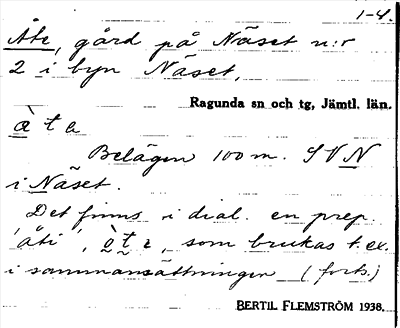 1-4.
Åte, gård på Näset n:r
2 i byn Näset.
Ragunda sn och tg, Jämtl. län.
Belägen 100 m. SV N
i Näset.
Det finns i dial. en prep.
'åti', som brukas t.ex.
i sammansättningen (forts.)
BERTIL FLEMSTRÖM 1938.